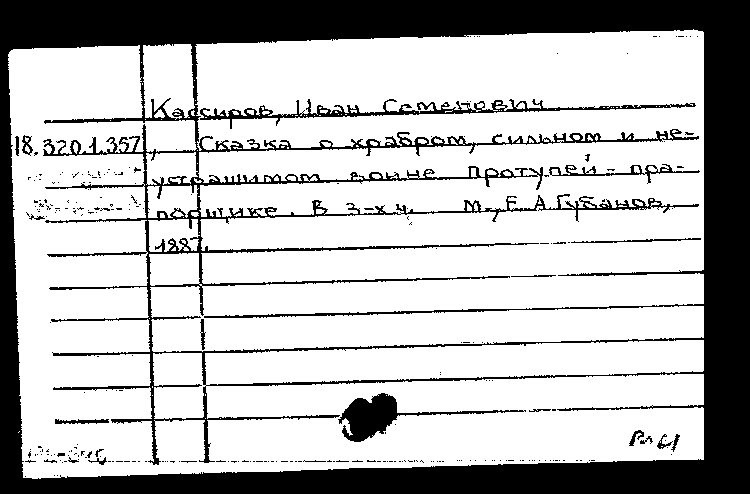 Кассиров, Иван Семенович
18.320.1.357, Сказка о храбром, сильном и не-
устрашимом воине Протупей-пра-
порщике. В 3-х ч. М., Е.А.Губанов,
1887.